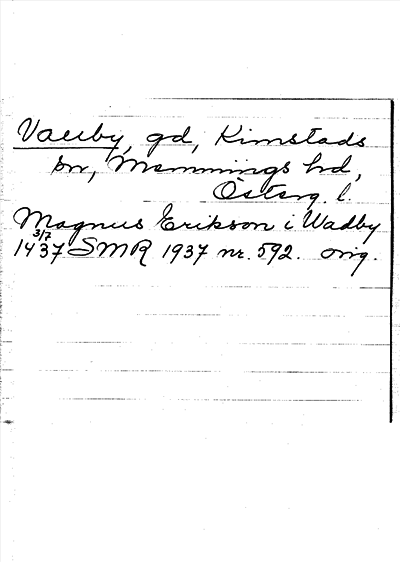 Vaeby, gd, Kimstads
sn, Memmings hd,
Österg. l.
Magnus Erikson i Wadby
14 3/7 37 SMR 1937 nr. 592. orig.